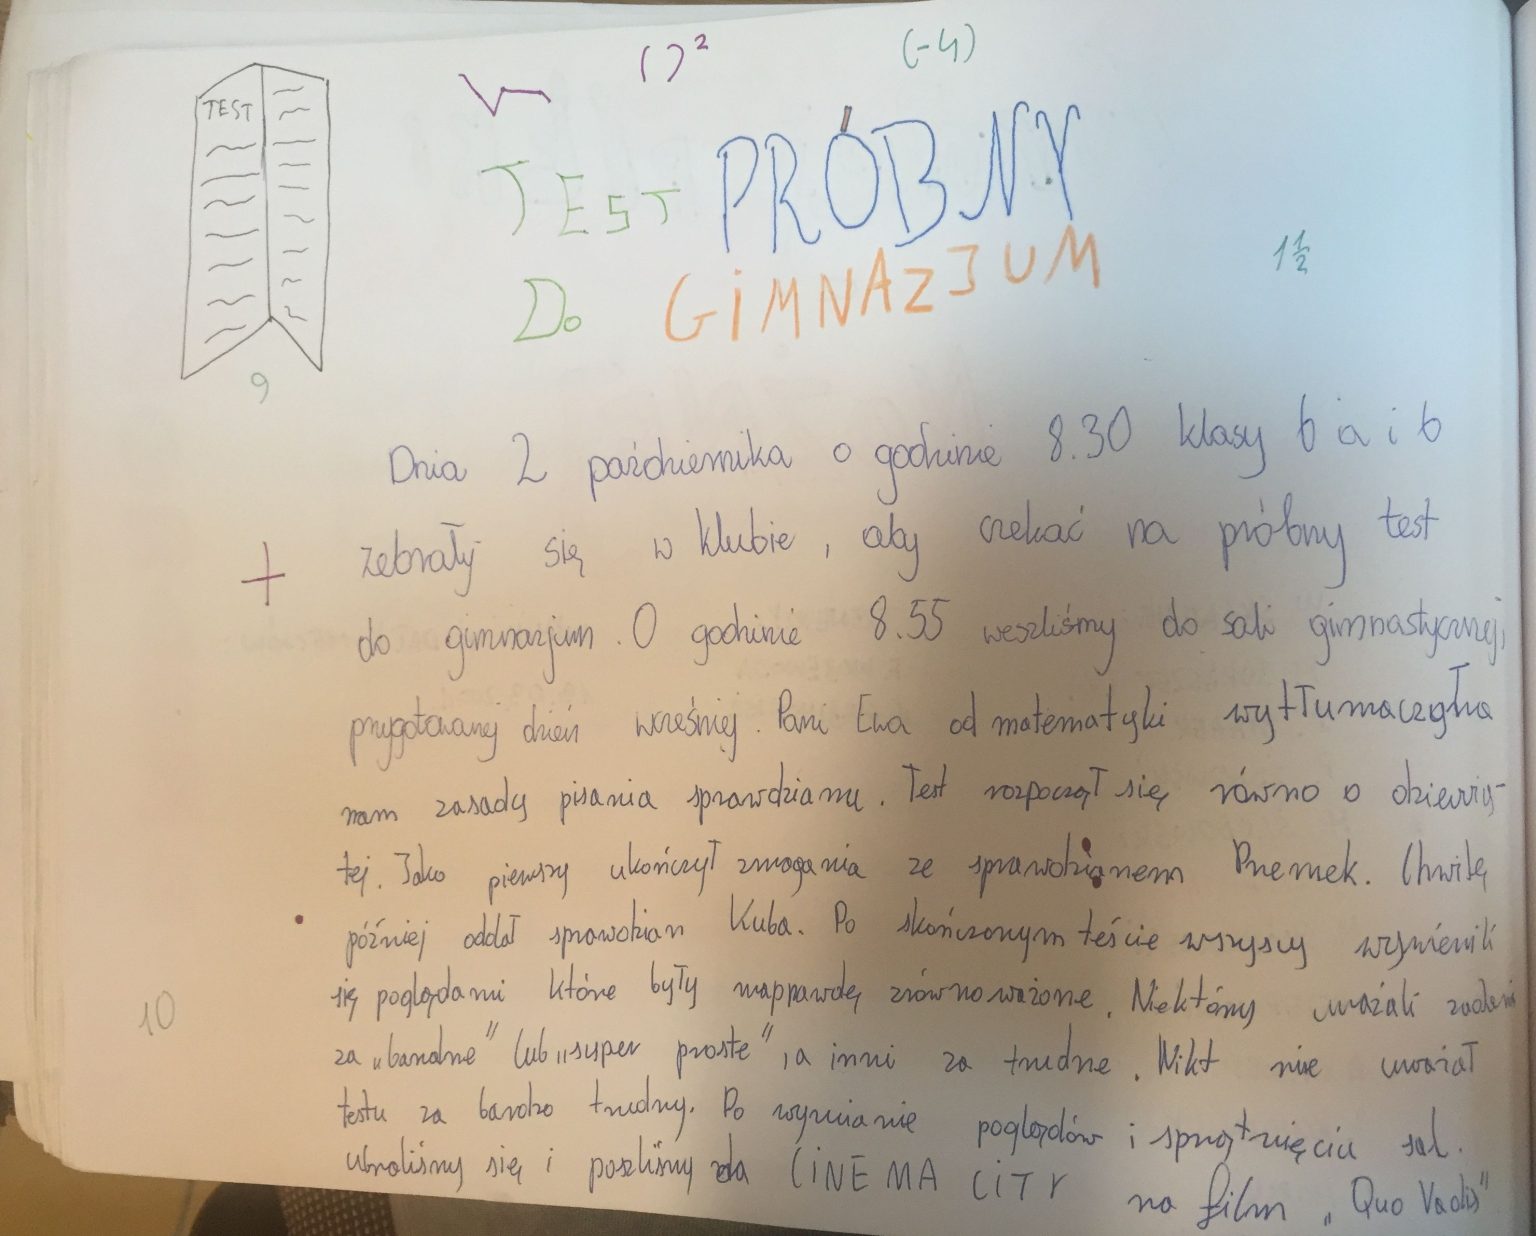 ( )²
(-4)
TEST
TEST PRÓBNY
1 1/2
DO GIMNAZJUM
9
Dnia 2 października o godzinie 8.30 klasy 6 a i b
+ zebrały się w klubie, aby czekać na próbny test
do gimnazjum. O godzinie 8.55 weszliśmy do sali gimnastycznej,
przygotowanej dzień wcześniej. Pani Ewa od matematyki wytłumaczyła
nam zasady pisania sprawdzianu. Test rozpoczął się równo o dziewią-
tej. Jako pierwszy ukończył zmagania ze sprawdzianem Przemek. Chwilę
później oddał sprawdzian Kuba. Po skończonym teście wszyscy wymienili
się poglądami które były nappawdę zrównoważone. Niektórzy uważali zadania
10
za „banalne" lub „super proste", a inni za trudne. Nikt nie uważał
testu za bardzo trudny. Po wymianie poglądów i sprzątnięciu sal.
ubraliśmy się i poszliśmy da CINEMA CITY na film „Quo Vadis"